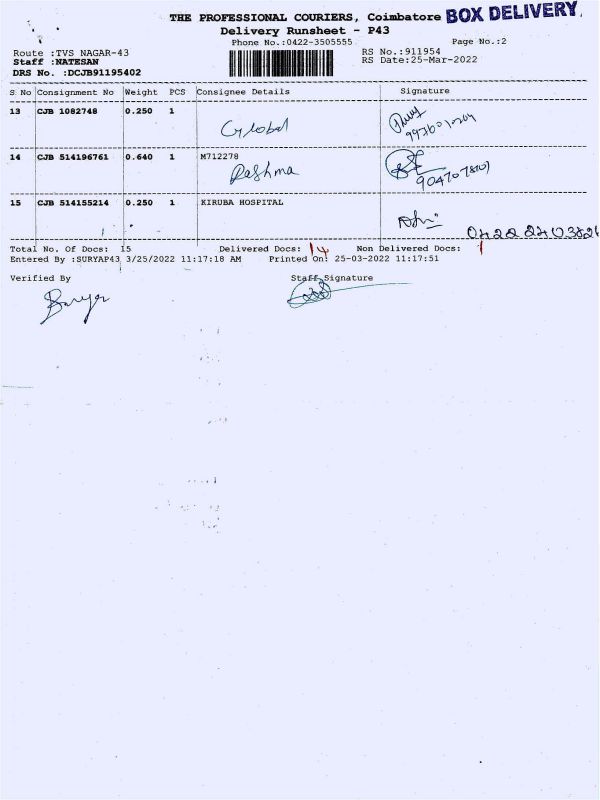 THE PROFESSIONAL COURIERS, Coimbatore BOX DELIVERY
Delivery Runsheet - P43
Phone No.:0422-3505555 Page No.:2
Route :TVS NAGAR-43 RS No.:911954
Staff :NATESAN RS Date:25-Mar-2022
DRS No. :DCJB91195402
S No Consignment No Weight PCS Consignee Details Signature
13 CJB 1082748 0.250 1
Global
14 CJB 514196761 0.640 1 M712278
Rashma
15 CJB 514155214 0.250 1 KIRUBA HOSPITAL
Total No. Of Docs: 15 Delivered Docs: 14 Non Delivered Docs: 1
Entered By :SURYAP43 3/25/2022 11:17:18 AM Printed On: 25-03-2022 11:17:51
Verified By Staff Signature
Surya